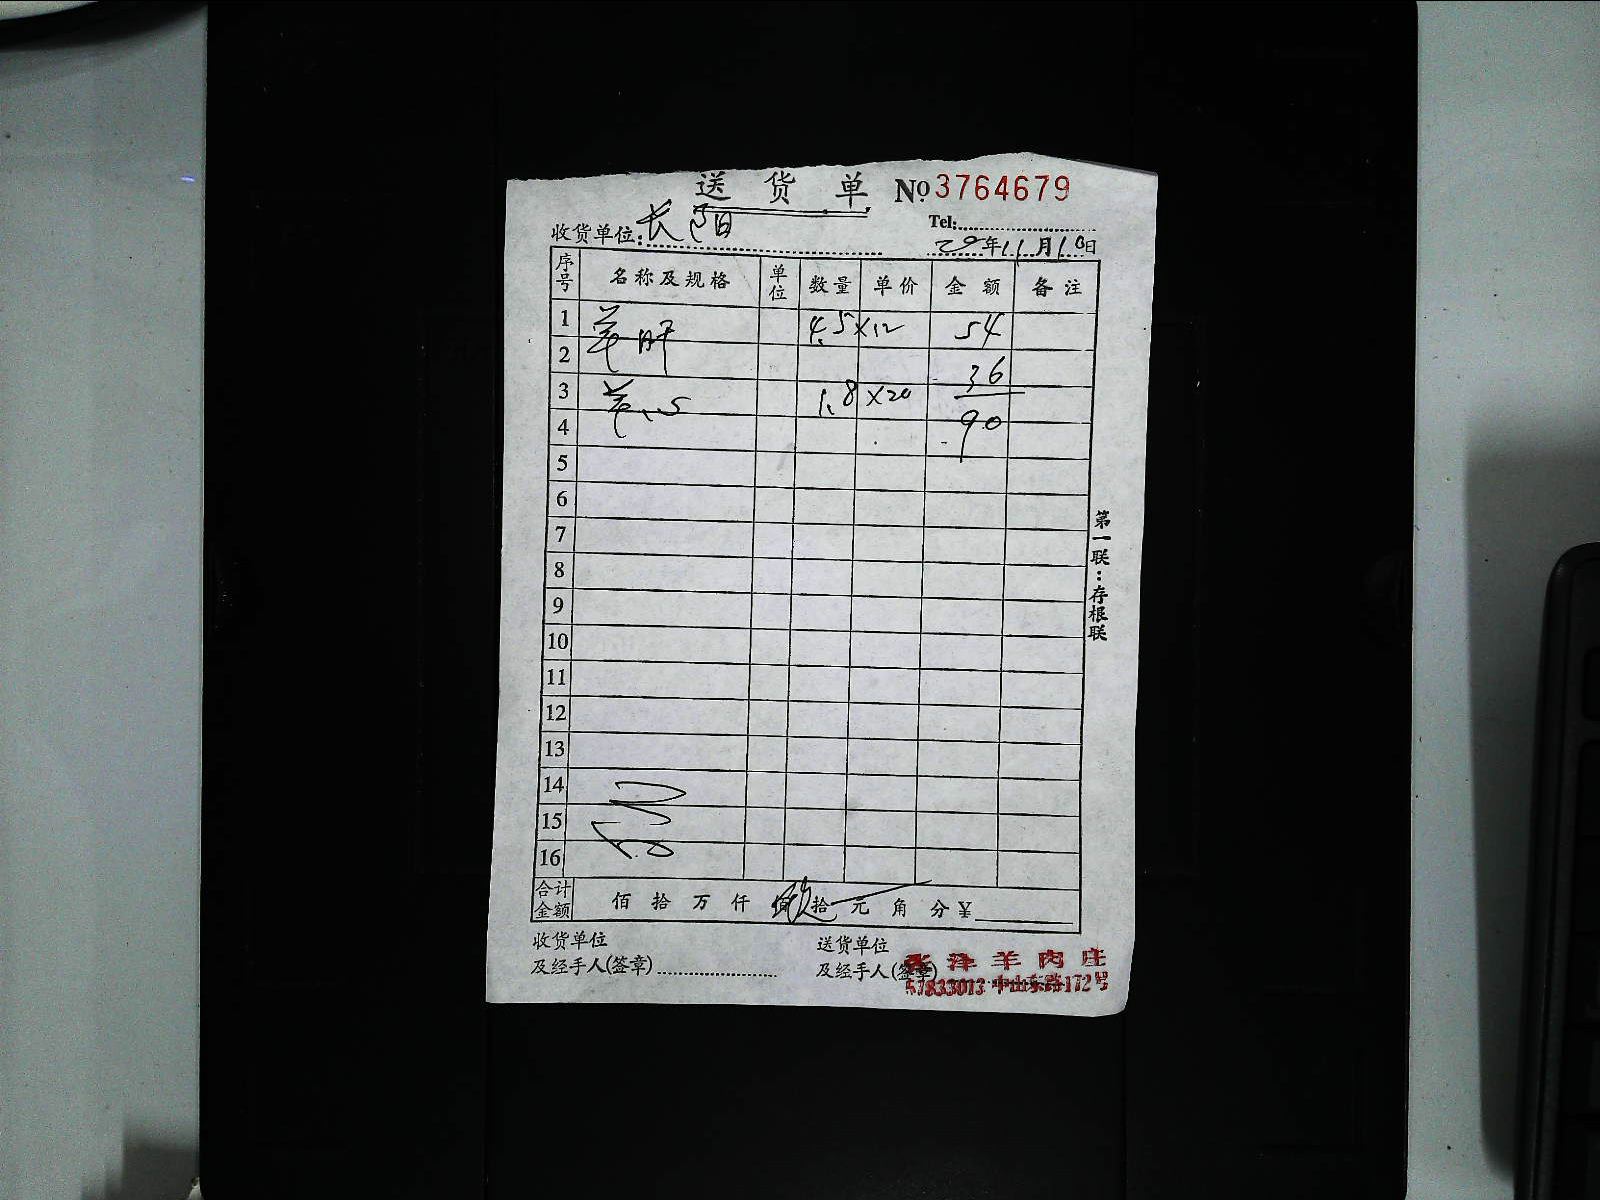 送货单 No 3764679
Tel:
收货单位: 长阳 20年11月10日
序号 名称及规格 单位 数量 单价 金额 备注
1 羊肝 4.5×12 54
2 36
3 羊心 1.8×20
4 90
5
6
7
8
9
10
11
12
13
14
15
16
合计金额 佰 拾 万 仟 佰 拾 元 角 分 ¥
收货单位 送货单位
及经手人(签章) 及经手人(签章)
羊肉庄
57833013 中山东路172号
第一联:存根联